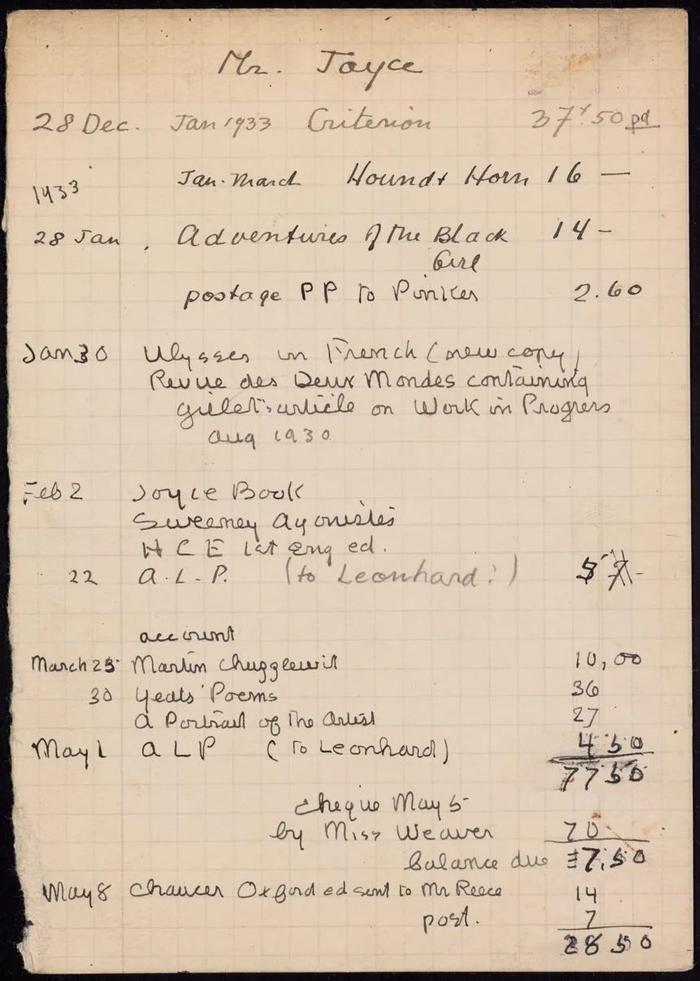 Mr. Joyce
28 Dec. Jan 1933 Criterion 37.50 pd
1933 Jan. March Hound & Horn 16 —
28 Jan, Adventures of the Black 14 -
Girl
postage PP to Pinker 2.60
Jan 30 Ulysses in French (new copy)
Revue des Deux Mondes containing
Gillet's article on Work in Progress
Aug 1930
Feb 2 Joyce Book
Sweeney Agonistes
H C E 1st Eng ed.
22 A. L. P. (to Leonhard!)
account
March 25 Martin Chuzzlewit 10,00
30 Yeats' Poems 36
A Portrait of the Artist 27
May 1 A L P (to Leonhard) 4 50
77 50
cheque May 5
by Miss Weaver 70
balance due 7,50
May 8 Chaucer Oxford ed sent to Mr Reece 14
post. 7
28 50